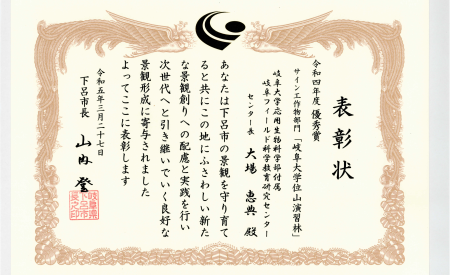 表彰状
令和四年度 優秀賞
サイン工作物部門「岐阜大学位山演習林」
岐阜大学応用生物科学部附属
岐阜フィールド科学教育研究センター
センター長 大場 恵典 殿
あなたは下呂市の景観を守り育て
ると共にこの地にふさわしい新た
な景観創りへの配慮と実践を行い
次世代へと引き継いでいく良好な
景観形成に寄与されました
よってここに表彰します
令和五年三月二十七日
下呂市長 山内 登
岐阜県
下呂市
長之印